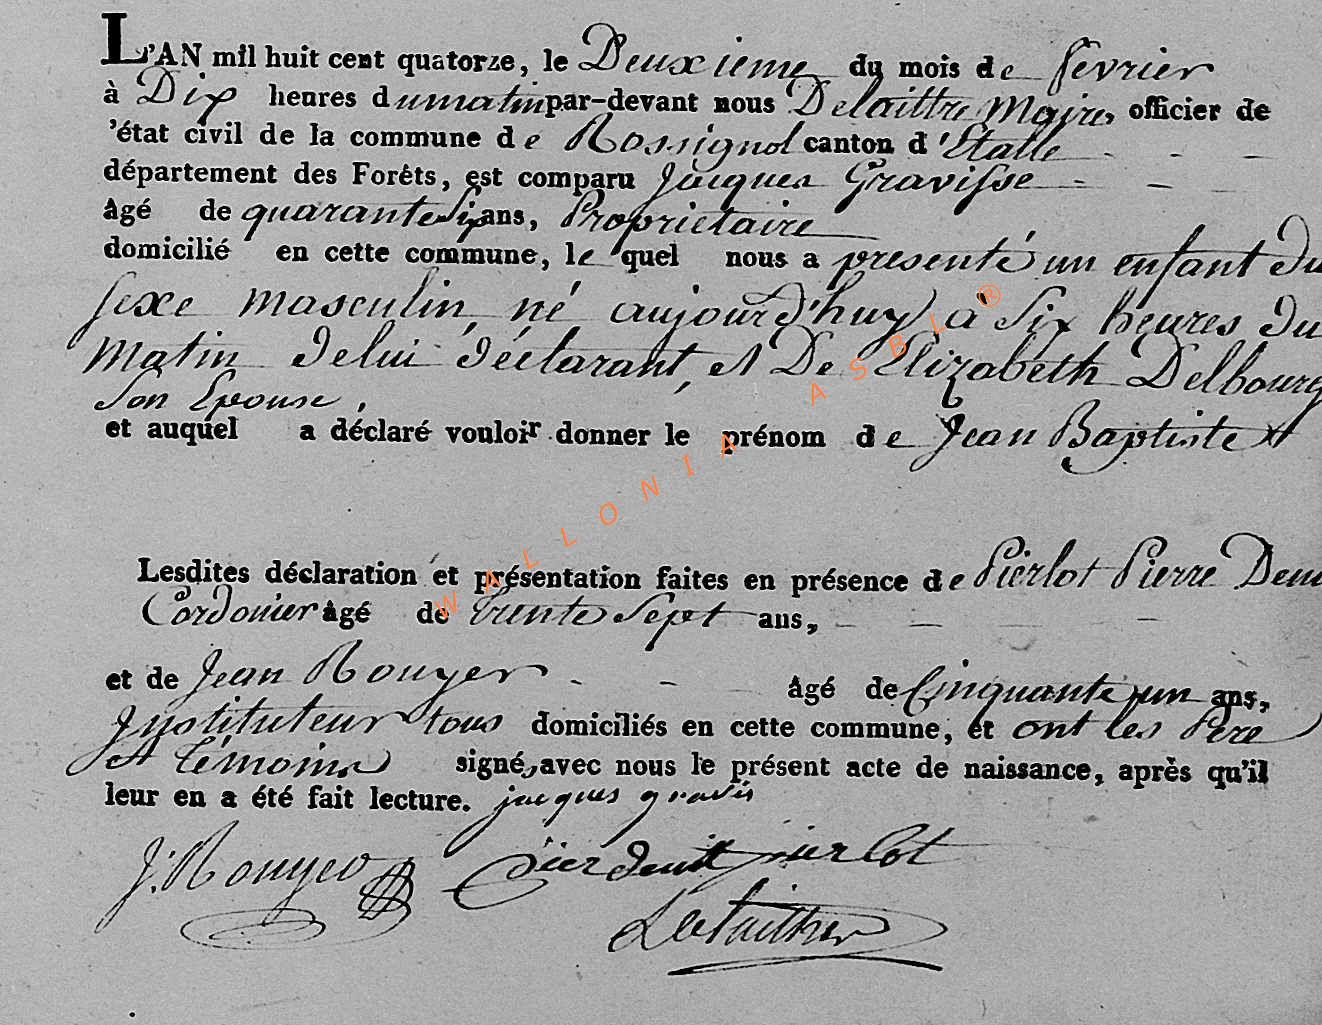 L'AN mil huit cent quatorze, le Deuxieme du mois de fevrier
à Dix heures du matin par-devant nous Delaittre Maire, officier de
'état civil de la commune de Rossignol canton d'Etalle
département des Forêts, est comparu Jacques Gravisse
âgé de quarante Six ans, Proprietaire
domicilié en cette commune, le quel nous a presenté un enfant du
sexe masculin, né aujourd'huy à Six heures du
Matin de lui déclarant, et De Elizabeth Delbourg
Son Epouse,
et auquel a déclaré vouloir donner le prénom de Jean Baptiste
Lesdites déclaration et présentation faites en présence de Pierlot Pierre
Cordonier âgé de Trente Sept ans,
et de Jean Rouyer âgé de Cinquante un ans,
Instituteur tous domiciliés en cette commune, et ont les Pere
et Témoins signé, avec nous le présent acte de naissance, après qu'il
leur en a été fait lecture. jacques gravis
J. Rouyer pierlot
WALLONIA ASBL ®